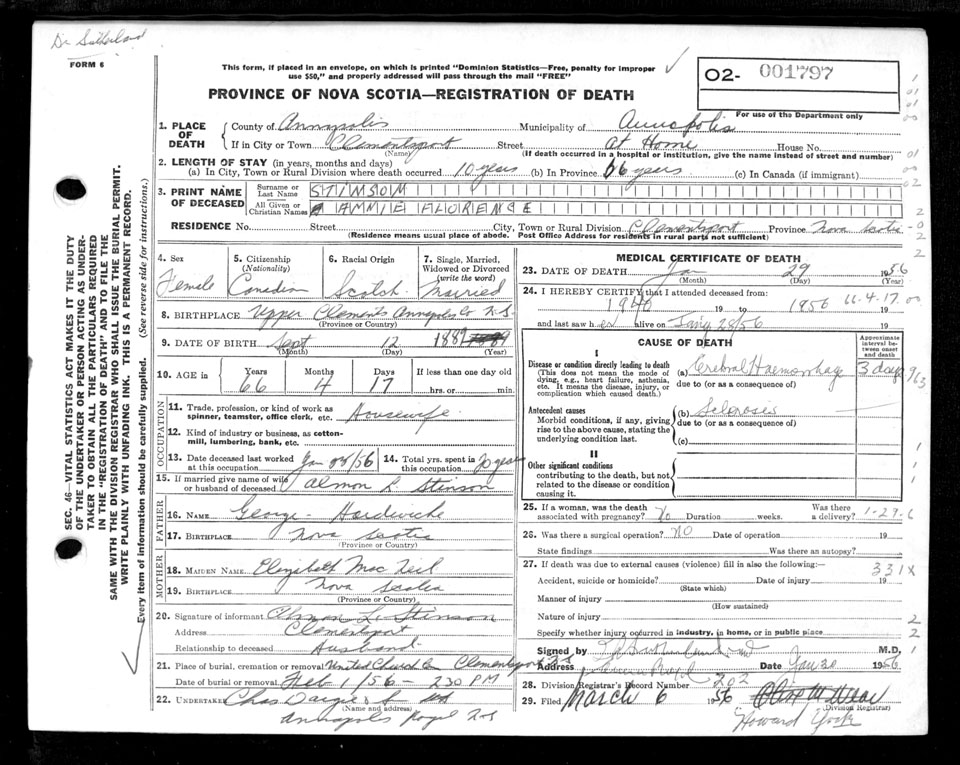 Dr Sutherland
FORM 6
This form, if placed in an envelope, on which is printed "Dominion Statistics—Free, penalty for improper
use $50," and properly addressed will pass through the mail "FREE"
O2- 001797
For use of the Department only
PROVINCE OF NOVA SCOTIA—REGISTRATION OF DEATH
1. PLACE OF DEATH
County of Annapolis Municipality of Annapolis
If in City or Town Clementsport Street At Home House No.
(Name) (If death occurred in a hospital or institution, give the name instead of street and number)
2. LENGTH OF STAY (in years, months and days)
(a) In City, Town or Rural Division where death occurred 10 years (b) In Province 66 years (c) In Canada (if immigrant)
3. PRINT NAME OF DECEASED
Surname or Last Name STINSON
All Given or Christian Names ANNIE FLORENCE
RESIDENCE No. Street City, Town or Rural Division Clementsport Province Nova Scotia
(Residence means usual place of abode. Post Office Address for residents in rural parts not sufficient)
4. Sex
Female
5. Citizenship (Nationality)
Canadian
6. Racial Origin
Scotch
7. Single, Married, Widowed or Divorced (write the word)
Married
8. BIRTHPLACE Upper Clements Annapolis Co N.S.
(Province or Country)
9. DATE OF BIRTH Sept 12 1889
(Month) (Day) (Year)
10. AGE in Years Months Days If less than one day old
66 4 17 hrs. or min.
OCCUPATION
11. Trade, profession, or kind of work as spinner, teamster, office clerk, etc. Housewife
12. Kind of industry or business, as cotton-mill, lumbering, bank, etc.
13. Date deceased last worked at this occupation Jan /56
14. Total yrs. spent in this occupation years
15. If married give name of wife or husband of deceased Almon L Stinson
FATHER
16. NAME George Hardwicke
17. BIRTHPLACE Nova Scotia
(Province or Country)
MOTHER
18. MAIDEN NAME Elizabeth Mac Neil
19. BIRTHPLACE Nova Scotia
(Province or Country)
20. Signature of informant Almon L. Stinson
Address Clementsport
Relationship to deceased Husband
21. Place of burial, cremation or removal United Church Cem Clementsport N.S
Date of burial or removal Feb 1/56 - 230 PM
22. UNDERTAKER Chas Dargie & Son
(Name and address)
Annapolis Royal N.S
MEDICAL CERTIFICATE OF DEATH
23. DATE OF DEATH Jan 29 1956
(Month) (Day) (Year)
24. I HEREBY CERTIFY that I attended deceased from:
1940 19 to 1956 19 66-4-17
and last saw her alive on Jan'y 28/56 19
CAUSE OF DEATH
Approximate interval between onset and death
I
Disease or condition directly leading to death
(This does not mean the mode of dying, e.g., heart failure, asthenia, etc. It means the disease, injury, or complication which caused death.)
(a) Cerebral Haemorrhage 3 days
due to (or as a consequence of)
Antecedent causes
Morbid conditions, if any, giving rise to the above cause, stating the underlying condition last.
(b) Sclerosis
due to (or as a consequence of)
(c)
II
Other significant conditions
contributing to the death, but not related to the disease or condition causing it.
25. If a woman, was the death associated with pregnancy? No Duration weeks. Was there a delivery?
26. Was there a surgical operation? NO Date of operation 19
State findings Was there an autopsy?
27. If death was due to external causes (violence) fill in also the following:— 331X
Accident, suicide or homicide? Date of injury 19
(State which)
Manner of injury
(How sustained)
Nature of injury
Specify whether injury occurred in industry, in home, or in public place
Signed by M.D.
Address Date Jan 30 1956
28. Division Registrar's Record Number 202
29. Filed March 6 1956
(Division Registrar)
Howard
SEC. 46—VITAL STATISTICS ACT MAKES IT THE DUTY
OF THE UNDERTAKER OR PERSON ACTING AS UNDER-
TAKER TO OBTAIN ALL THE PARTICULARS REQUIRED
IN THE "REGISTRATION OF DEATH" AND TO FILE THE
SAME WITH THE DIVISION REGISTRAR WHO SHALL ISSUE THE BURIAL PERMIT.
WRITE PLAINLY WITH UNFADING INK. THIS IS A PERMANENT RECORD.
Every item of information should be carefully supplied. (See reverse side for instructions.)